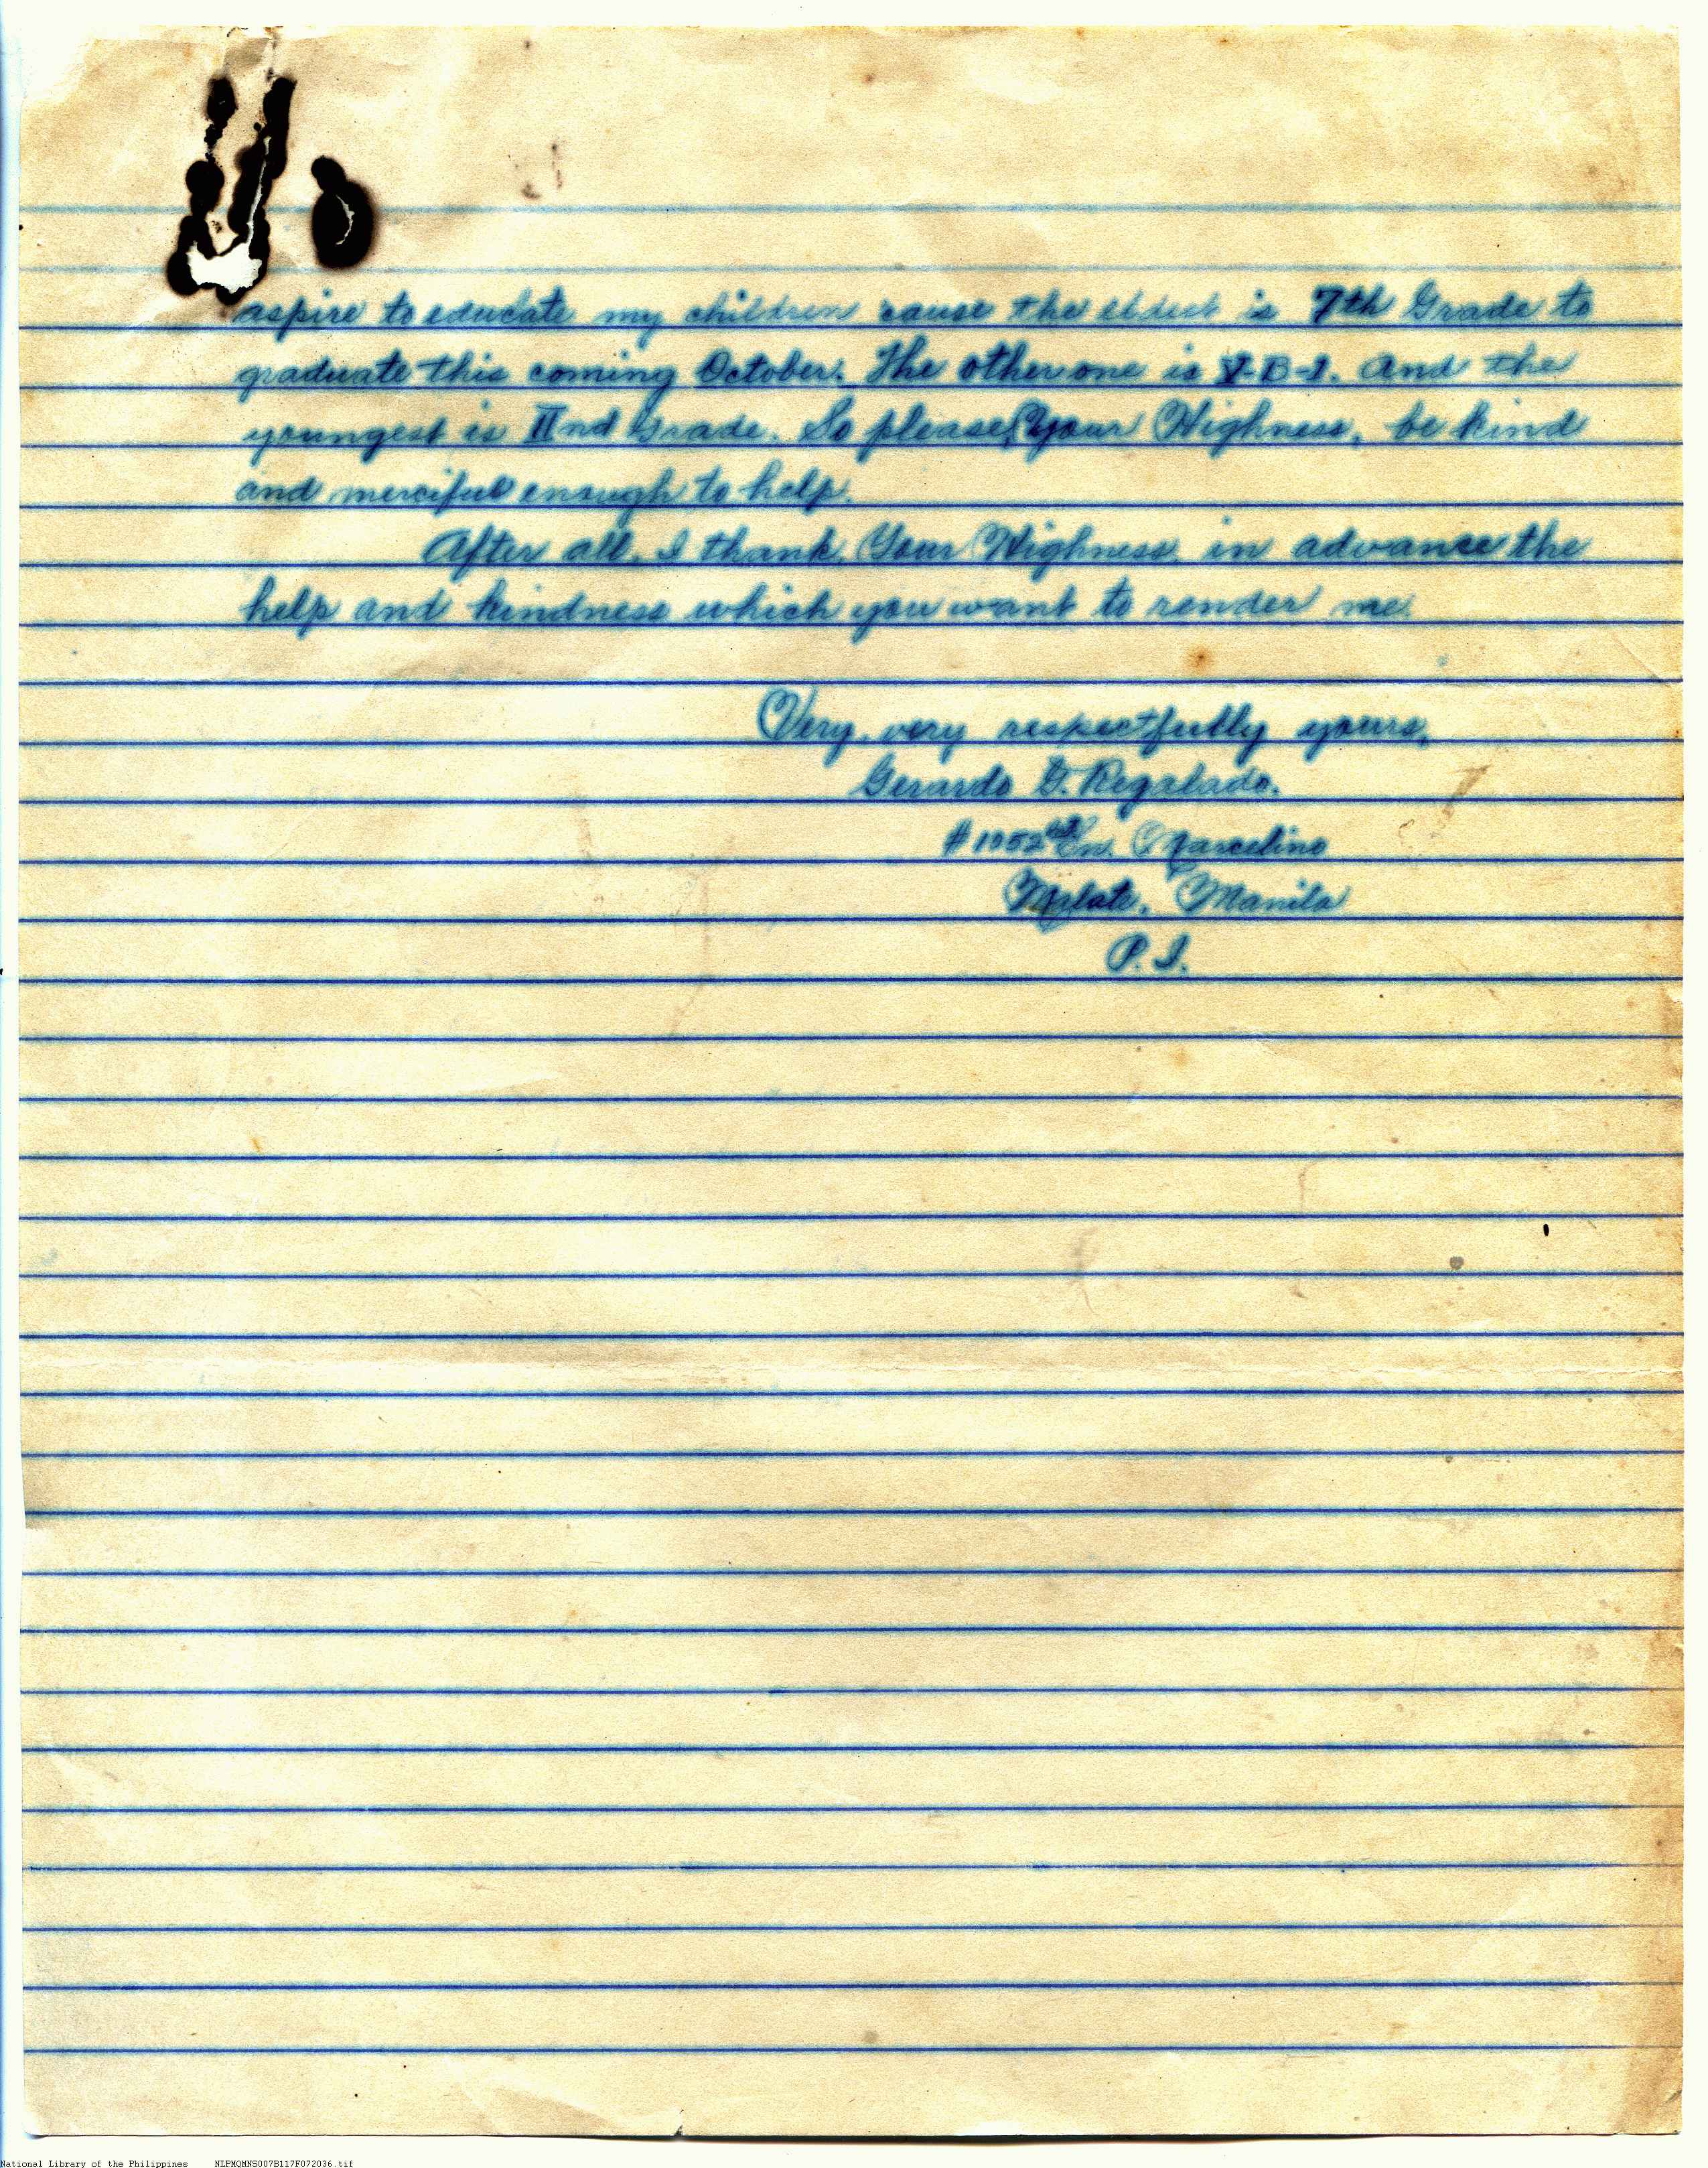 aspire to educate my children 'cause the eldest is 7th Grade to
graduate this coming October. The other one is V-B-1. And the
youngest is IInd Grade. So please, Your Highness, be kind
and merciful enough to help.
After all, I thank Your Highness in advance the
help and kindness which you want to render me.
Very, very respectfully yours,
Gerardo G. Regalado.
#1052 Marcelino
Malate, Manila
P. I.
National Library of the Philippines NLPMQMNS007B117F072036.tif